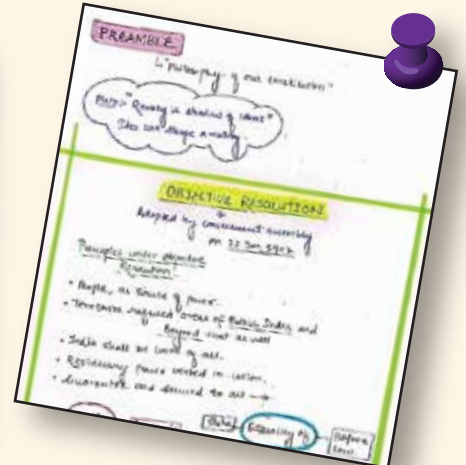 PREAMBLE
"Philosophy of our Constitution"
"Reality is shadow of ideas"
Idea can shape a reality
OBJECTIVE RESOLUTION
Adopted by constituent assembly
on 22 Jan,
Principles under objective
Resolution
• People, as source of power
• Territories areas of British India and
Beyond that as well
• India shall be of all.
• Residuary power vested in union.
• Guarantee and secured to all →
Equality of
Before
Law